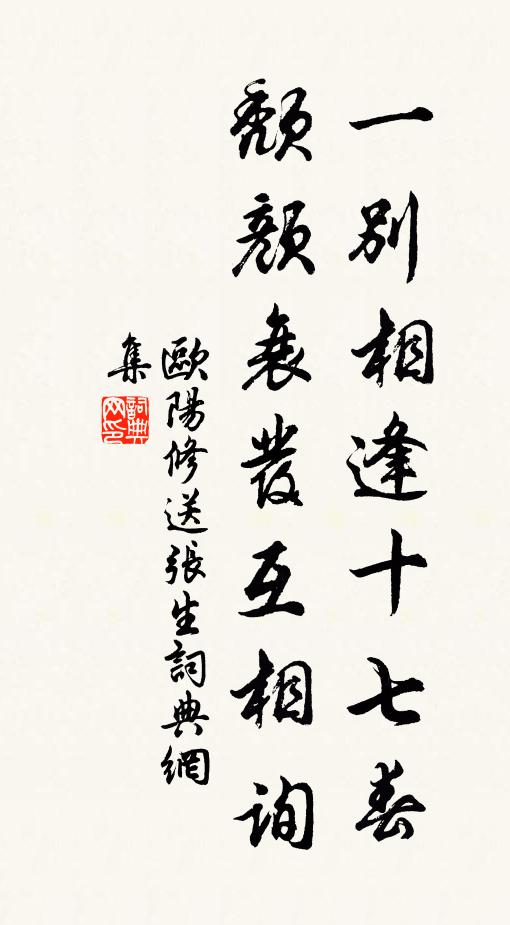 一別相逢十七春
頹顏衰發互相詢
歐陽修送張生詞典網
集
詞典網印